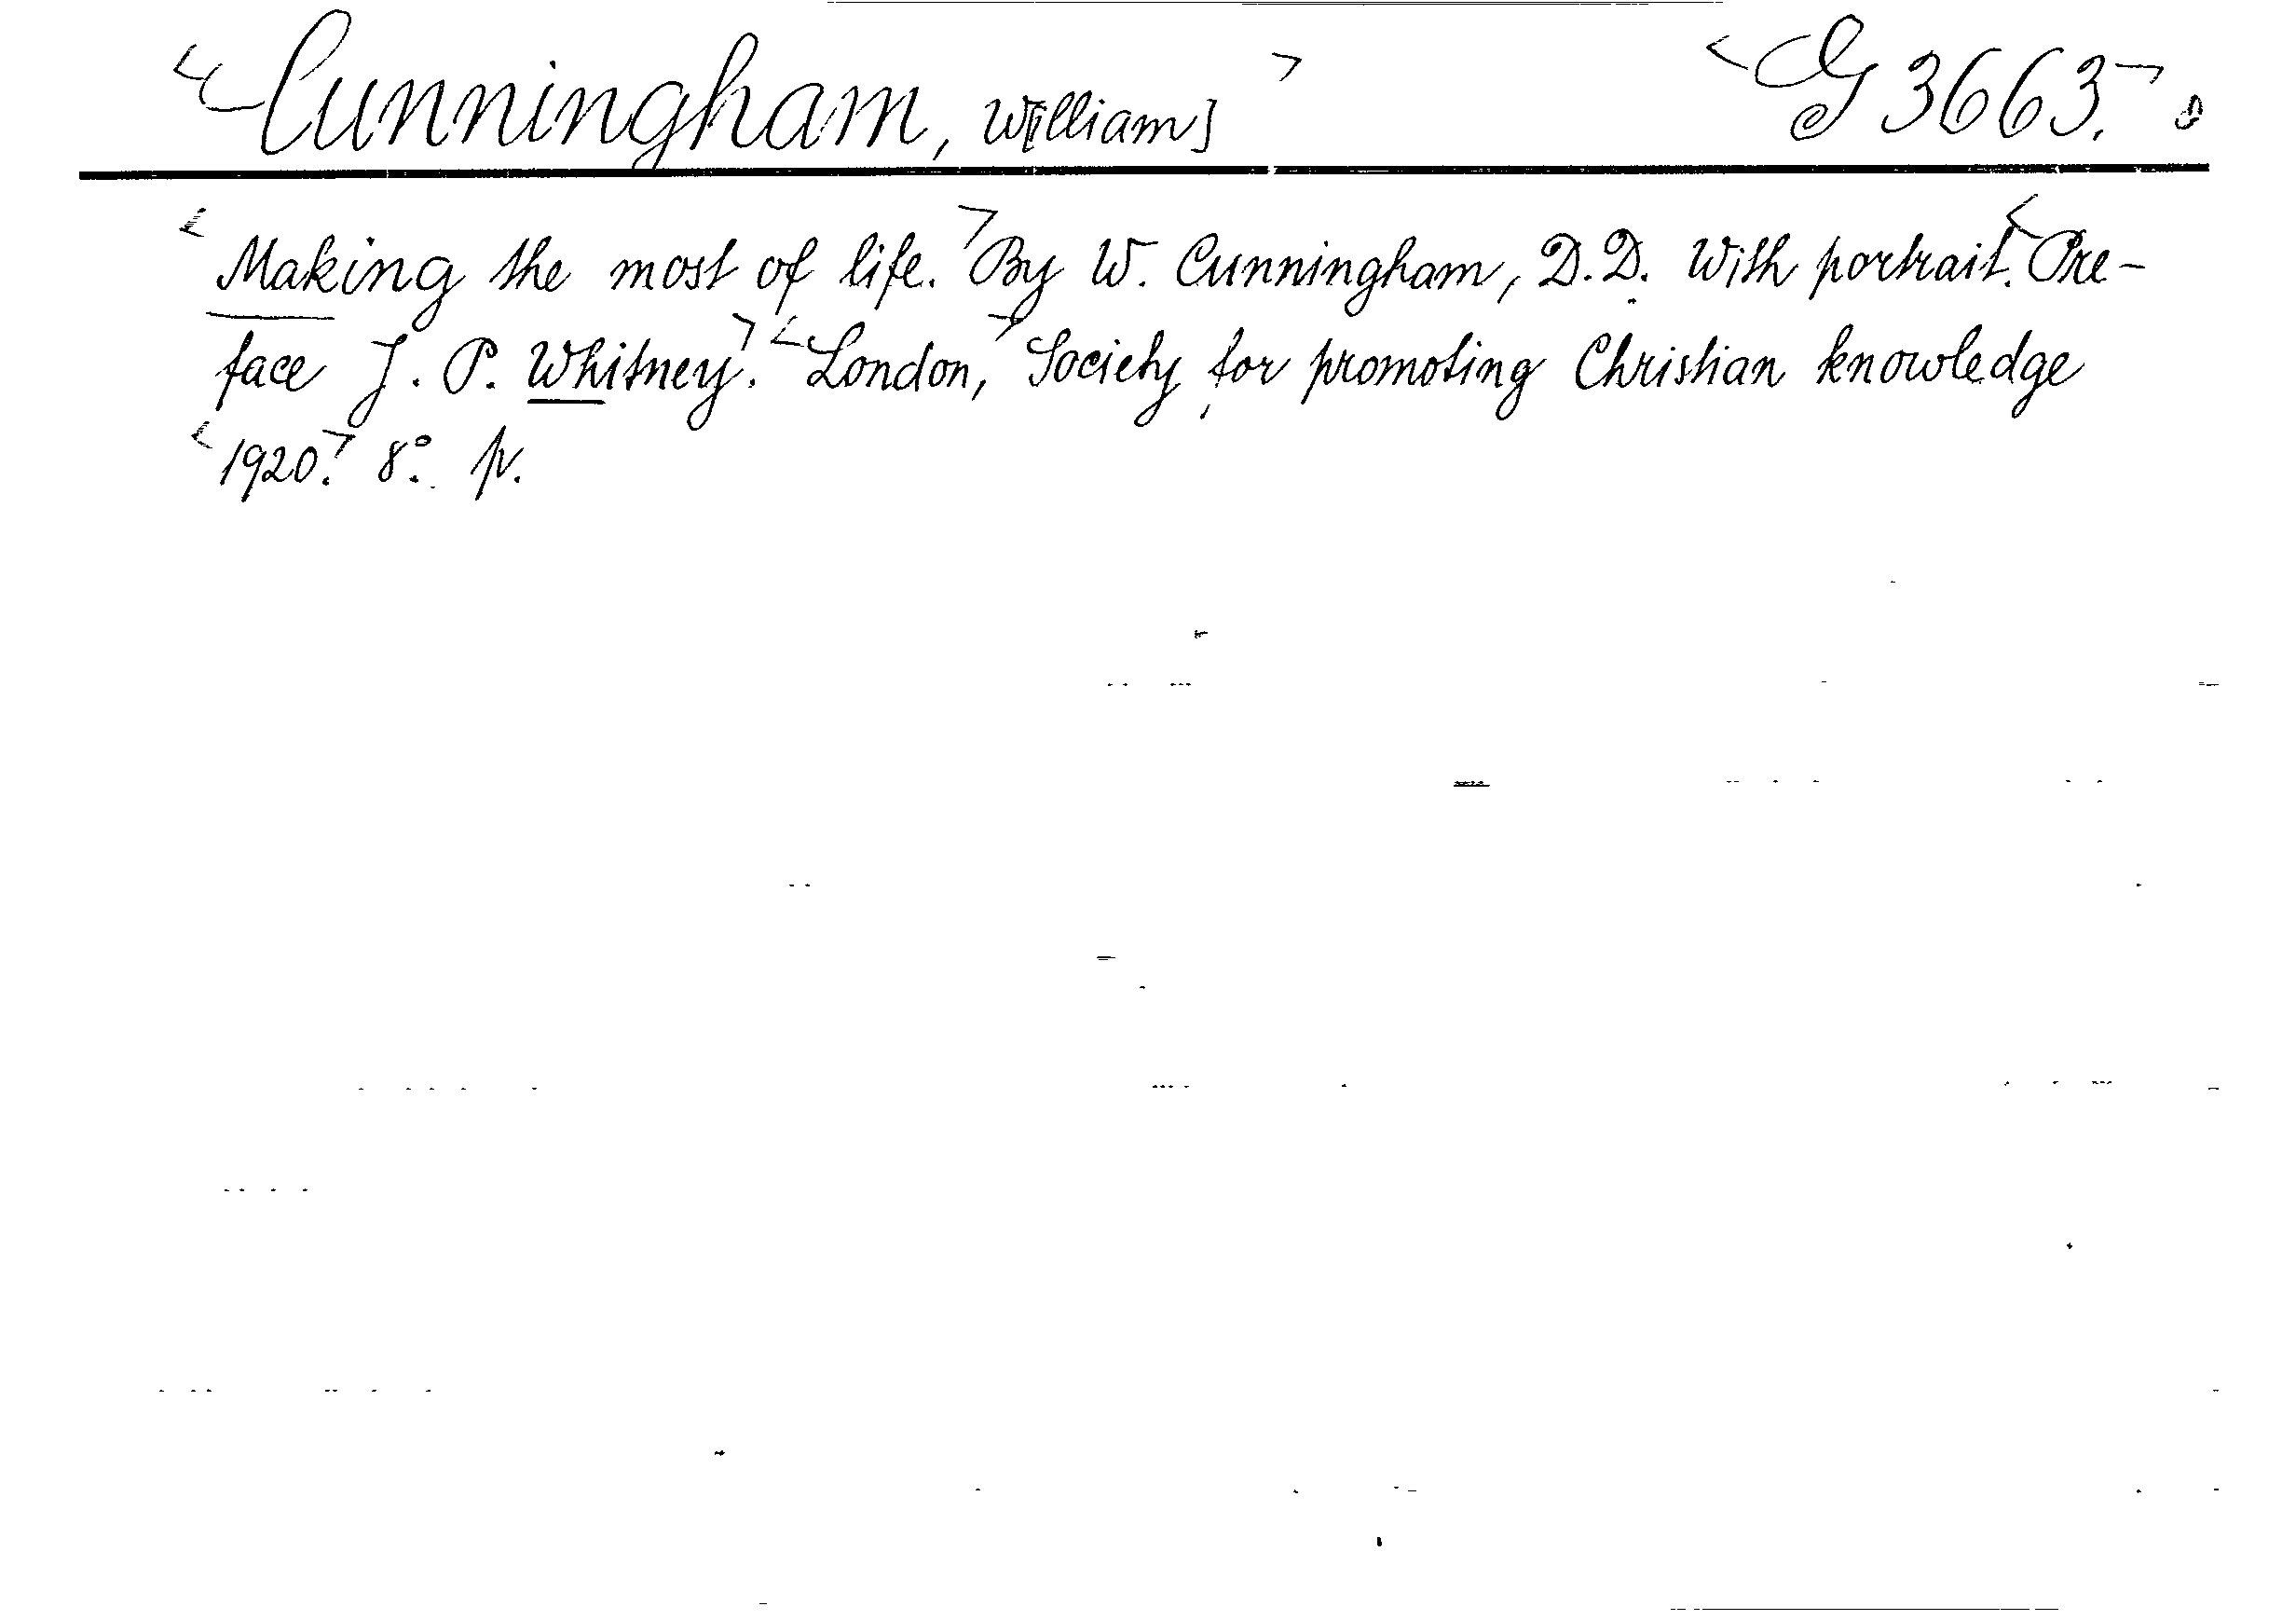 Cunningham, W[illiam] G 3663.
Making the most of life. By W. Cunningham, D.D. With portrait. Pre-
face J. P. Whitney. London, Society for promoting Christian knowledge
1920. 8°. p.